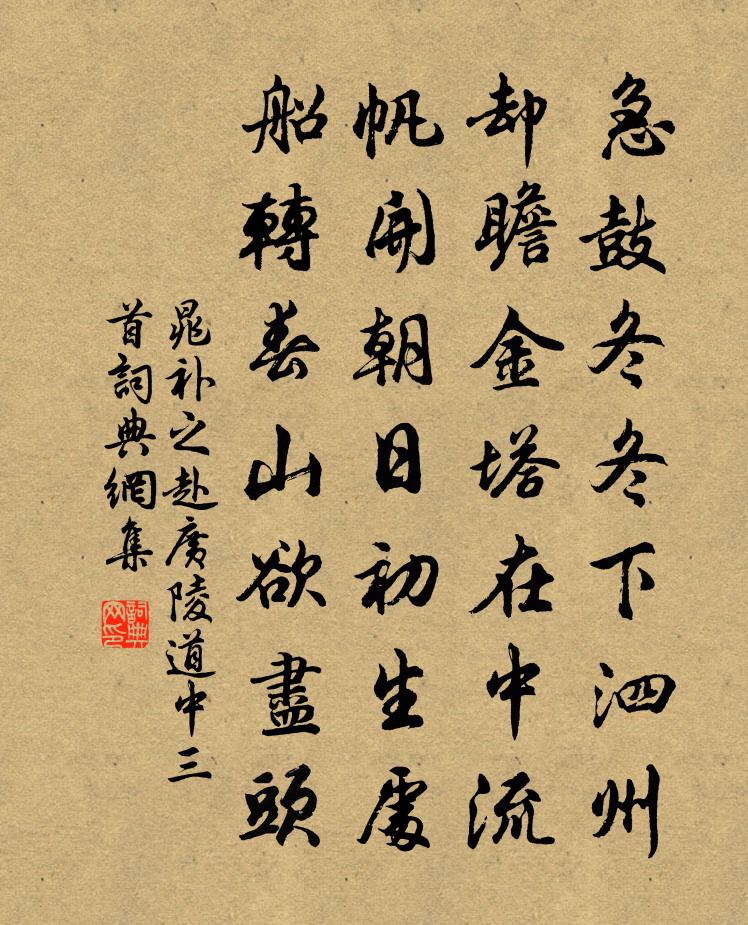 急鼓冬冬下泗州
却瞻金塔在中流
帆開朝日初生處
船轉春山欲盡頭
晁補之赴廣陵道中三
首詞典網集
詞典
网印